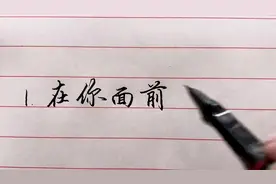 1.在你面前